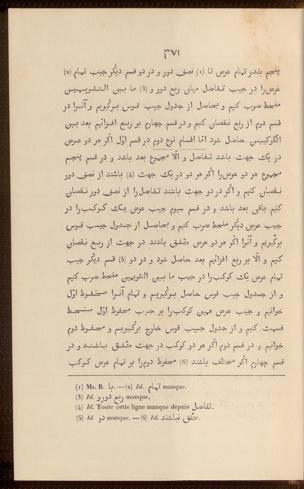 ٣٧١
پنجم بقدر تمام عرض تا (١) نصف دور و در دو قسم دیگر جیب تمام (٢)
عرض را در جیب تفاضل میان ربع دور و (٣) ما بین التقویمین
منحط ضرب کنیم و بحاصل از جدول جیب قوس برگیریم و آنرا در
قسم دوم از ربع نقصان کنیم و در قسم چهارم بر ربع افزائیم بعد بین
الکوکبین حاصل شود امّا اقسام نوع دوم در قسم اوّل اگر هر دو عرض
در یک جهت باشد تفاضل و الّا مجموع بعد باشد و در قسم پنجم
مجموع هر دو عرض را اگر هر دو در یک جهت (٤) باشند از نصف دور
نقصان کنیم و اگر در دو جهت باشند تفاضل را از نصف دور نقصان
کنیم باقی بعد باشد و در قسم سیوم جیب عرض یک کوکب را در
جیب عرض دیگر منحط ضرب کنیم و بحاصل از جدول جیب قوس
برگیریم و آنرا اگر هر دو عرض متفق باشند در جهت از ربع نقصان
کنیم و الّا بر ربع افزائیم بعد حاصل شود و در دو (٥) قسم دیگر جیب
تمام عرض یک کوکب را در جیب ما بین التقویمین منحط ضرب کنیم
و از جدول جیب قوس حاصل برگیریم و تمام آنرا محفوظ اوّل
خوانیم و جیب عرض همین کوکب را بر جیب محفوظ اوّل منحط
قسمت کنیم و از جدول جیب قوس خارج برگیریم و محفوظ دوم
خوانیم و در قسم دوم اگر هر دو کوکب در جهت متفق باشند و در
قسم چهارم اگر مختلف باشند (6) محفوظ دوم را بر تمام عرض کوکب
(1) Ms. B. با. — (2) Id. تمام manque.
(3) Id. ربع دور و manque.
(4) Id. Toute cette ligne manque depuis تفاضل.
(5) Id. دو manque. — (6) Id. متفق نباشند.